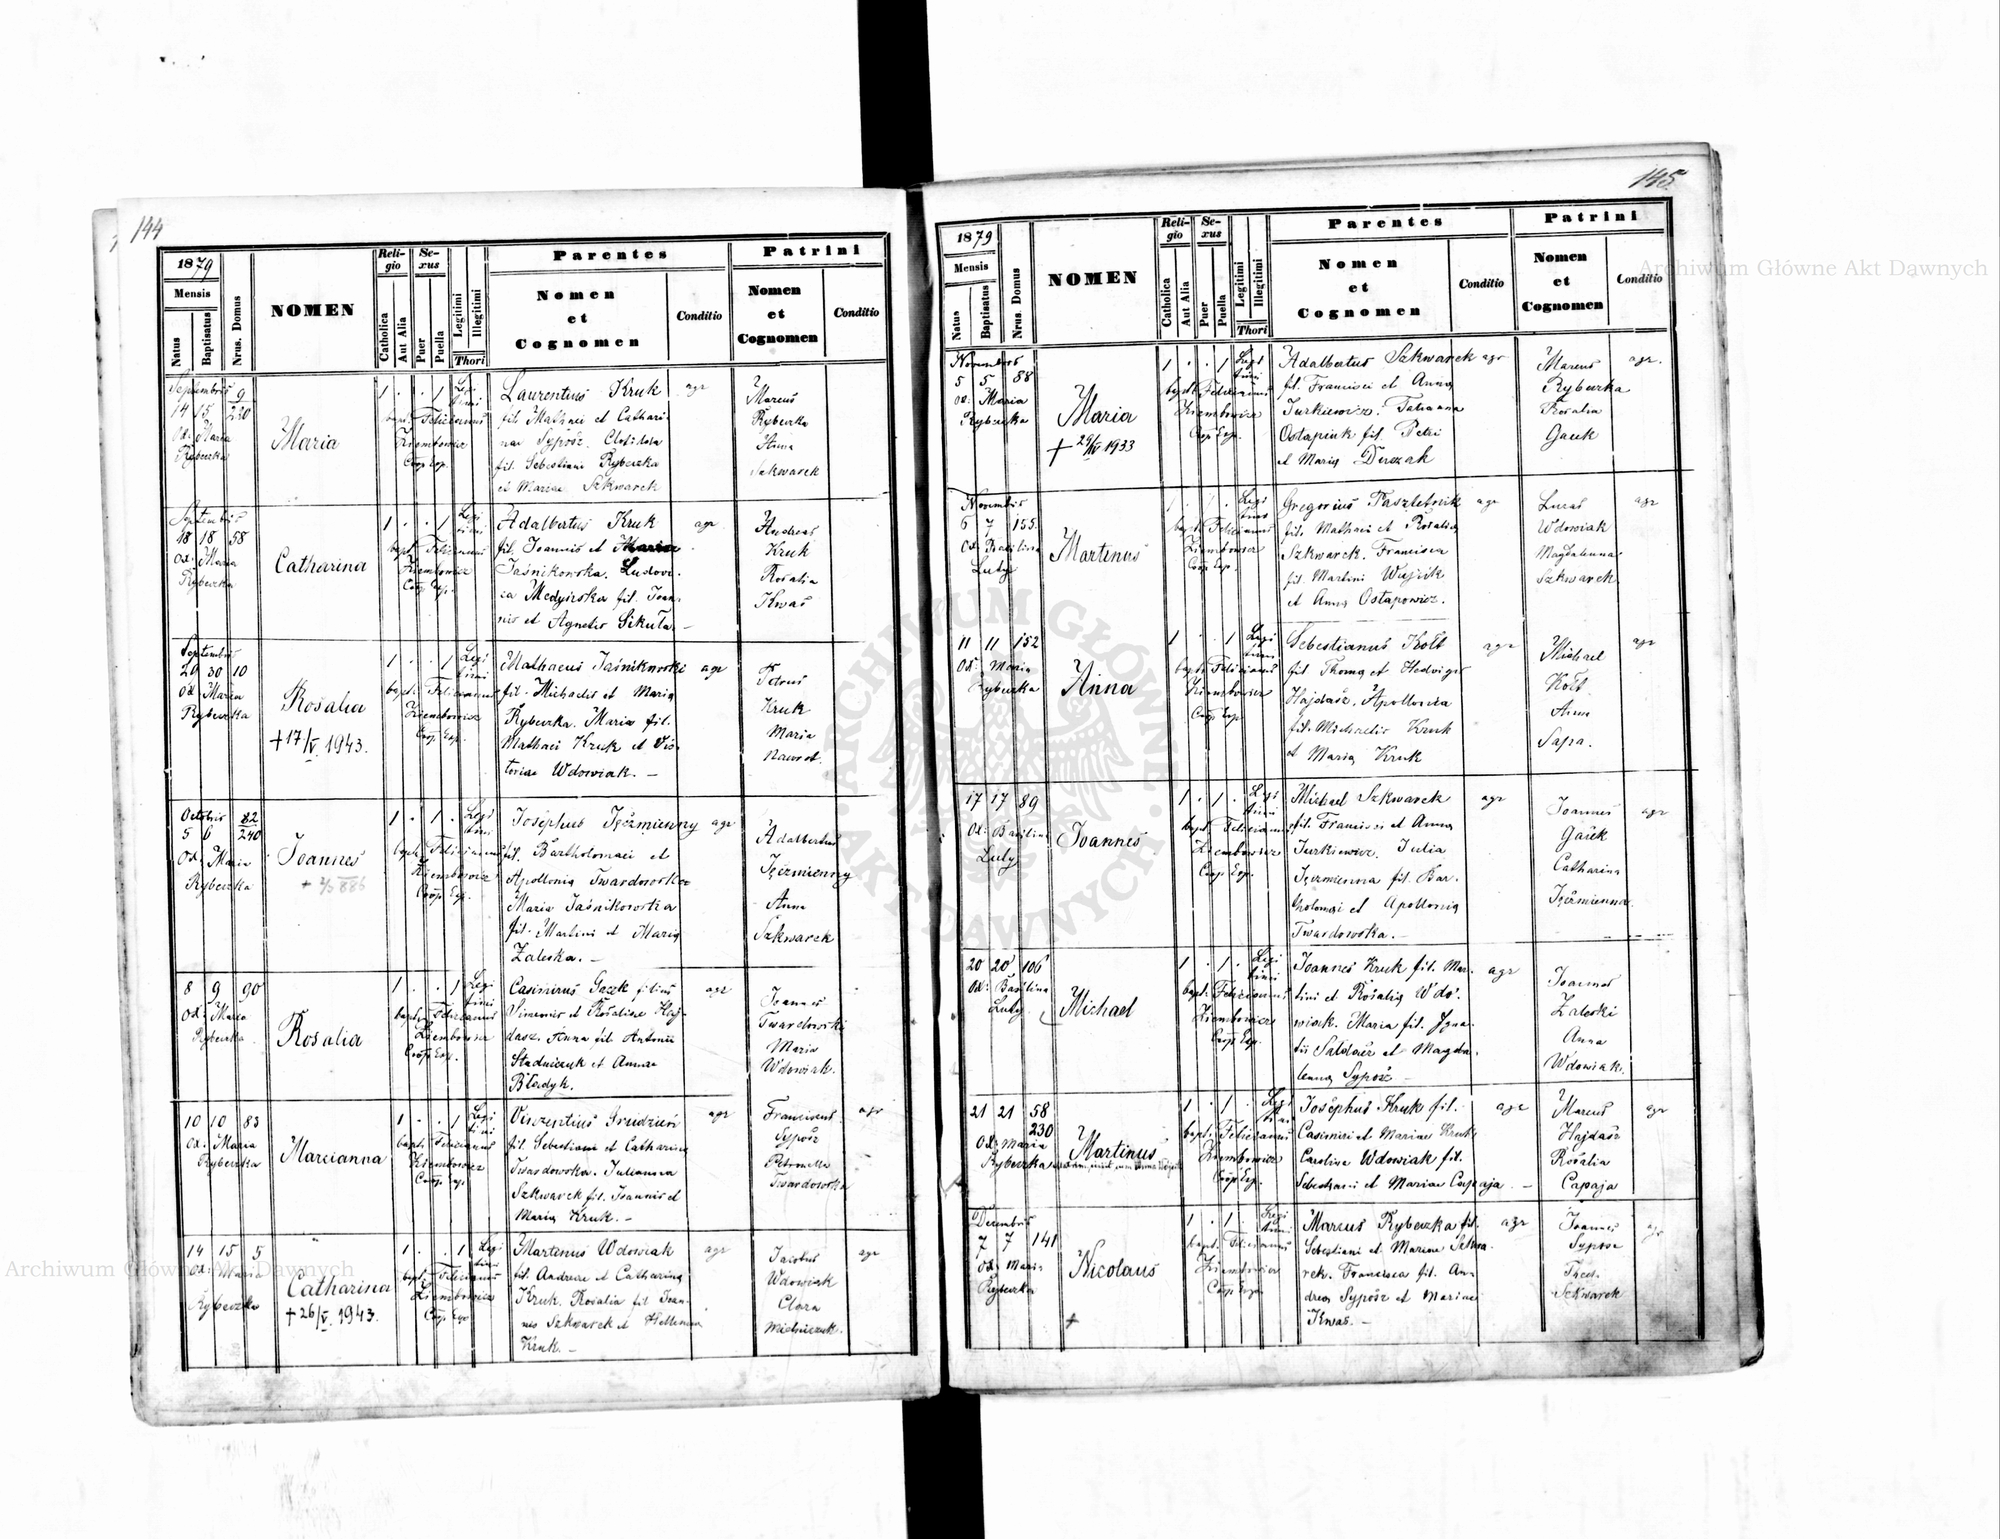 144
1879
Mensis
Natus
Baptisatus
Nrus. Domus
NOMEN
Reli-
gio
Catholica
Aut Alia
Se-
xus
Puer
Puella
Legitimi
Illegitimi
Thori
Parentes
Nomen
et
Cognomen
Conditio
Patrini
Nomen
et
Cognomen
Conditio
Septembris 9
14 15 230
Od: Maria
Rybeczka
Maria
1 . . 1 Legi
timi
bapt. Felicianus
Ziembowicz
Coop. Exp.
Laurentius Kruk
fil. Mathaei et Cathari-
nae Syposz. Clotilda
fil. Sebestiani Rybeczka
et Mariae Szkwarek
agr
Marcus
Rybeczka
Anna
Szkwarek
Septembris
18 18 58
Od: Maria
Rybeczka
Catharina
1 . . 1 Legi
timi
bapt. Felicianus
Ziembowicz
Coop. Exp.
Adalbertus Kruk
fil. Joannis et Maria
Jaśnikowska. Ludovi-
ca Medyńska fil. Joan-
nis et Agnetis Sikuła. –
agr
Andreas
Kruk
Rosalia
Kwaś
Septembris
29 30 10
Od: Maria
Rybeczka
Rosalia
+ 17/V. 1943.
1 . . 1 Legi
timi
bapt. Felicianus
Ziembowicz
Coop. Exp.
Mathaeus Jaśnikowski
fil. Michaelis et Maria
Rybeczka. Maria fil.
Mathaei Kruk et Vic-
toriae Wdowiak. –
agr
Petrus
Kruk
Maria
Nawrot.
Octobris 82
5 6 240
Od: Maria
Rybeczka
Joannes
1 . 1 . Legi
timi
bapt. Felicianus
Ziembowicz
Coop. Exp.
Josephus Jęczmienny
fil. Bartholomaei et
Apollonia Twardowska
Maria Jaśnikowska
fil. Martini et Maria
Zaleska. –
agr
Adalbertus
Jęczmienny
Anna
Szkwarek
8 9 90
Od: Maria
Rybeczka
Rosalia
1 . . 1 Legi
timi
bapt. Felicianus
Ziembowicz
Coop. Exp.
Casimirus Gazk filius
Simeonis et Rosaliae Haj-
dasz. Anna fil. Antonii
Stadniczuk et Annae
Bładyk.
agr
Joannes
Twardowski
Maria
Wdowiak.
10 10 83
Od: Maria
Rybeczka
Marcianna
1 . . 1 Legi
timi
bapt. Felicianus
Ziembowicz
Coop. Exp.
Vincentius Grudzień
fil. Sebestiani et Catharina
Twardowska. Julianna
Szkwarek fil. Joannis et
Maria Kruk. –
agr
Franciscus
Syposz
Petronella
Twardowska
agr
14 15 5
Od: Maria
Rybeczka
Catharina
+ 26/V. 1943.
1 . . 1 Legi
timi
bapt. Felicianus
Ziembowicz
Coop. Exp.
Martinus Wdowiak
fil. Andreae et Catharina
Kruk. Rosalia fil. Joan-
nis Szkwarek et Hellenae
Kruk. –
agr
Jacobus
Wdowiak
Clara
agr
145.
1879
Mensis
Natus
Baptisatus
Nrus. Domus
NOMEN
Reli-
gio
Catholica
Aut Alia
Se-
xus
Puer
Puella
Legitimi
Illegitimi
Thori
Parentes
Nomen
et
Cognomen
Conditio
Patrini
Nomen
et
Cognomen
Conditio
Novembris
5 5 88
Od: Maria
Rybeczka
Maria
1 . . 1 Legi
timi
bapt. Felicianus
Ziembowicz
Coop. Exp.
Adalbertus Szkwarek
fil. Francisci et Anna
Jurkiewicz. Tatianna
Ostapiuk fil. Petri
et Maria Derczak
agr
Marcus
Rybeczka
Rosalia
Gacek
agr.
Novembris
6 7 155.
Od: Basilina
Luty
Martinus
bapt. Felicianus
Ziembowicz
Coop. Exp.
Gregorius Paszletnik
fil. Mathaei et Rosalia
Szkwarek. Francisca
fil. Martini Wujcik
et Anna Ostapowicz.
agr
Lucas
Wdowiak
Magdalenna
Szkwarek
agr
11 11 152
Od: Maria
Rybeczka
Anna
1 . . 1 Legi
timi
bapt. Felicianus
Ziembowicz
Coop. Exp
Sebestianus Kołt
fil. Thoma et Hedvigis
Hajdasz. Apollonia
fil. Michaelis Kruk
et Maria Kruk
agr
Michael
Kołt
Anna
Sapa.
agr
17 17 89
Od: Basilina
Luty
Joannes
1 . 1 . Legi
timi
bapt. Felicianus
Ziembowicz
Coop. Exp.
Michael Szkwarek
fil. Francisci et Anna
Jurkiewicz. Julia
Jęczmienna fil. Bar-
tholomaei et Apollonia
Twardowska. –
agr
Joannes
Gacek
Catharina
Jęczmienna
agr
20 20 106
Od: Basilina
Luty
Michael
1 . 1 . Legi
timi
bapt. Felicianus
Ziembowicz
Coop. Exp.
Joannes Kruk fil. Mar-
tini et Rosalia Wdo-
wiak. Maria fil. Igna-
tii Sałdasz et Magda-
lenna Syposz –
agr
Joannes
Zaleski
Anna
Wdowiak.
21 21 58
230
Od: Maria
Rybeczka
Martinus
1 . 1 . Legi
timi
bapt. Felicianus
Ziembowicz
Coop. Exp.
Josephus Kruk fil.
Casimiri et Mariae Kruk
Carolina Wdowiak fil.
Sebestiani et Mariae Capaja. –
agr
Marcus
Hajdasz
Rosalia
Capaja
agr
Decembris
7 7 141
Od: Maria
Rybeczka
Nicolaus
+
1 . 1 . Legi
timi
bapt. Felicianus
Ziembowicz
Coop. Exp.
Marcus Rybeczka fil.
Sebestiani et Mariae Szkwa-
rek. Francisca fil. An-
drea Syposz et Mariae
Kwaś. –
agr
Joannes
Syposz
Szkwarek
agr
Archiwum Główne Akt Dawnych
Archiwum Główne Akt Dawnych
ARCHIWUM GŁÓWNE AKT DAWNYCH